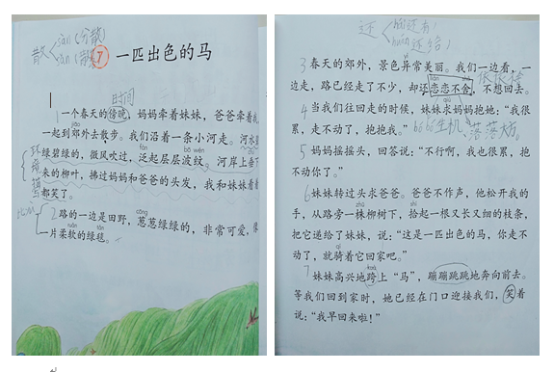 散
sàn (分散)
7 一匹出色的马
时间
1 一个春天的傍晚，妈妈牵着妹妹，爸爸牵着
jiāo
一起到郊外去散步。我们沿着一条小河走。河水
fàn bō wén
绿碧绿的，微风吹过，泛起层层波纹。河岸上
来的柳叶，拂过妈妈和爸爸的头发，我和妹妹看着
都笑了。
cōng
2 路的一边是田野，葱葱绿绿的，非常可爱，
ruǎn tǎn
一片柔软的绿毯。
还
hái 还有
huán 还给
3 春天的郊外，景色异常美丽。我们一边看，一
边走，路已经走了不少，却还恋恋不舍，不想回去。
4 当我们往回走的时候，妹妹求妈妈抱她：“我很
累，走不动了，抱抱我。”
5 妈妈摇摇头，回答说：“不行啊，我也很累，抱
不动你了。”
6 妹妹转过头求爸爸。爸爸不作声，他松开我的
手，从路旁一株柳树下，拾起一根又长又细的枝条，
把它递给了妹妹，说：“这是一匹出色的马，你走不
动了，就骑着它回家吧。”
kuà
7 妹妹高兴地跨上“马”，蹦蹦跳跳地奔向前去。
等我们回到家时，她已经在门口迎接我们，笑着
说：“我早回来啦！”